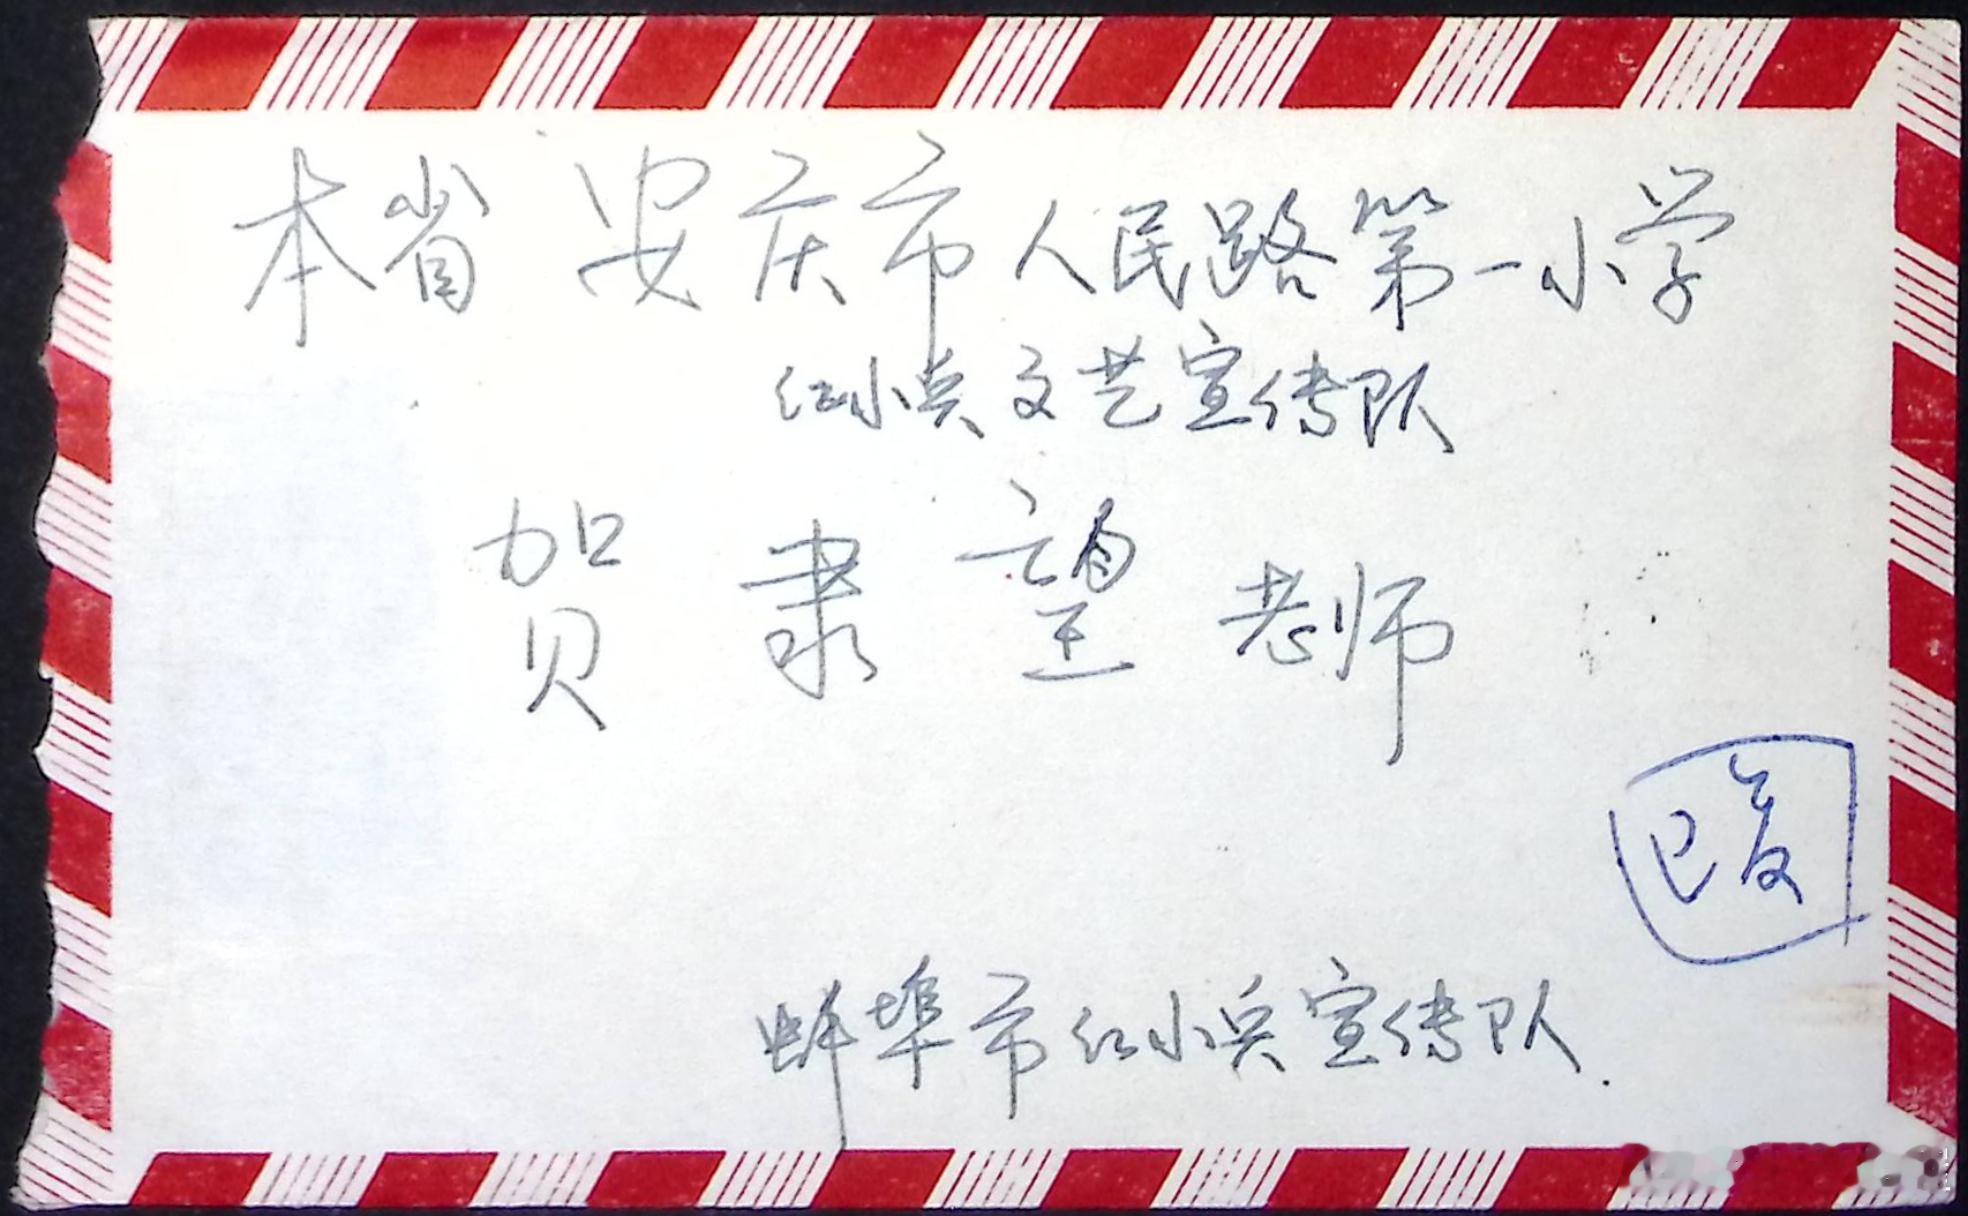 本省 安庆市人民路第一小学
红小兵文艺宣传队
贺 隶 望 老师
已复
蚌埠市红小兵宣传队.